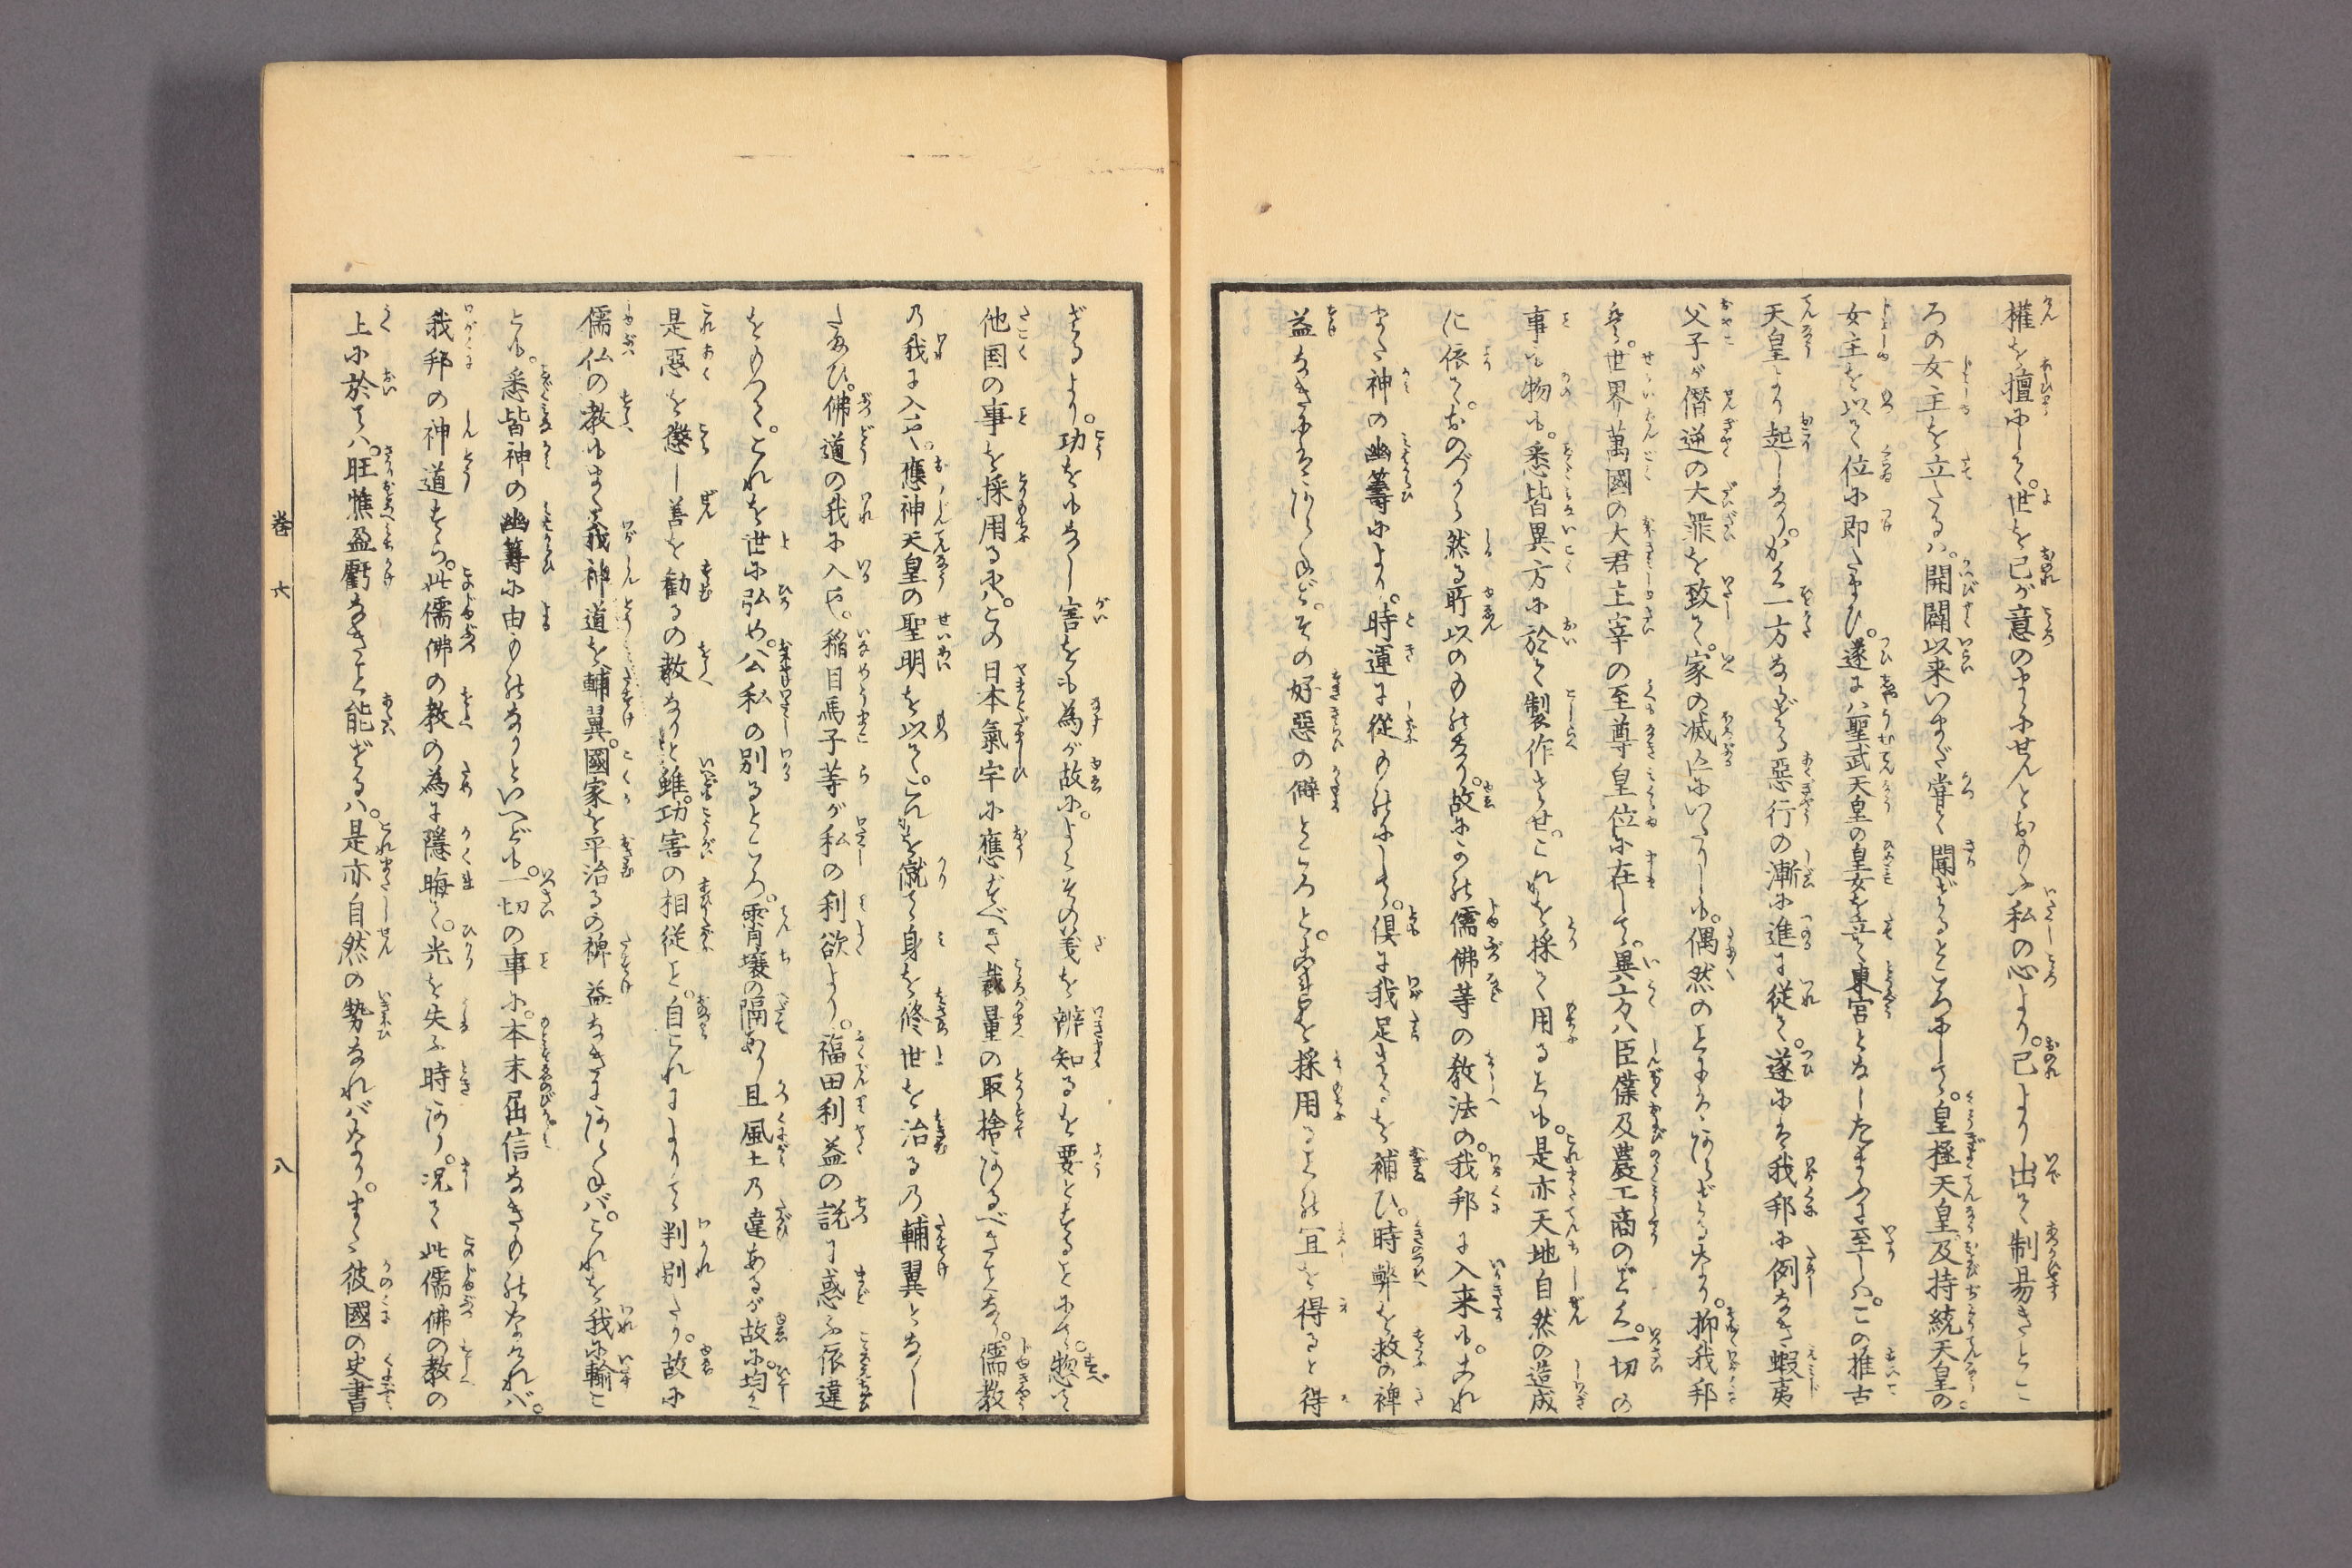 權を擅にして。世を己が意のまゝにせんとおもふ私の心より。己より出て制易きところ
ろの女主を立たるハ。開闢以来いまだ嘗て聞ざるところにして。皇極天皇及持統天皇の
女主を以て位に即たまひ。遂にハ聖武天皇の皇女を立て東宮となしたまふに至しハ。この推古
天皇より起しなり。かく一方ならざる惡行の漸に進に從て。遂にハ我邦に例なき蝦夷
父子が僭逆の大罪を致て。家の滅亡にいたりしも。偶然の事にハあらざるなり。抑我邦
世界萬國の大君主宰の至尊皇位に在して。異方ハ臣僕及農工商のごく。一切の
事も物も。悉皆異方に於て製作させ。これを採て用るも。是亦天地自然の造成
に依て。おのづから然る所以のものなり。故にこの儒佛等の教法の。我邦に入来も。これ
また神の幽籌により。時運に從ものにして。倶に我足ざるを補ひ。時弊を救の裨
益なきにハあらねど。その好惡の僻ところと。こ
れを採用るもの宜を得ると得
ざるより。功をもなし害をも為が故に。よくその義を辨知るを要とすることにて。惣て
他国の事を採用るにハ。この日本氣宇に應ずべき裁量の取捨あるべきことなり。儒教
乃我に入や。應神天皇の聖明を以て。これを就て身を修世を治る乃輔翼となし
たまひ。佛道の我に入や。稲目馬子等が私の利欲より。福田利益の説に惑ふ依違
をもつて。これを世に弘め。公私の別るところ。霄壤の隔あり且風土乃違あるが故に。均く
是惡を懲し善を勸るの教なりと雖。功害の相從こと。自これによりて判別たり。故に
儒仏の教もまた我神道を輔翼。國家を平治るの裨益なきにあらねバ。これを我に輸こ
とも。悉皆神の幽籌に由ものなりといへども。一切の事に。本末屈信なきものなけれバ。
我邦の神道すら。此儒佛の教の為に隱晦て。光を失ふ時あり。況て此儒佛の教の
上に於てハ。旺憔盈虧なきこと能ざるハ。是亦自然の勢なれバなり。まづ彼國の史書
巻六
八